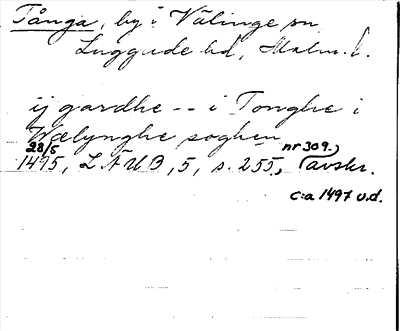 Tånga, by i Välinge sn
Luggude hd, Malm. l.
ij gardhe -- i Tonghe i
Wælynghe soghen
28/5 nr 309.,
1495, LÄUB, 5, s. 255, (avskr.
c:a 1497 u.d.